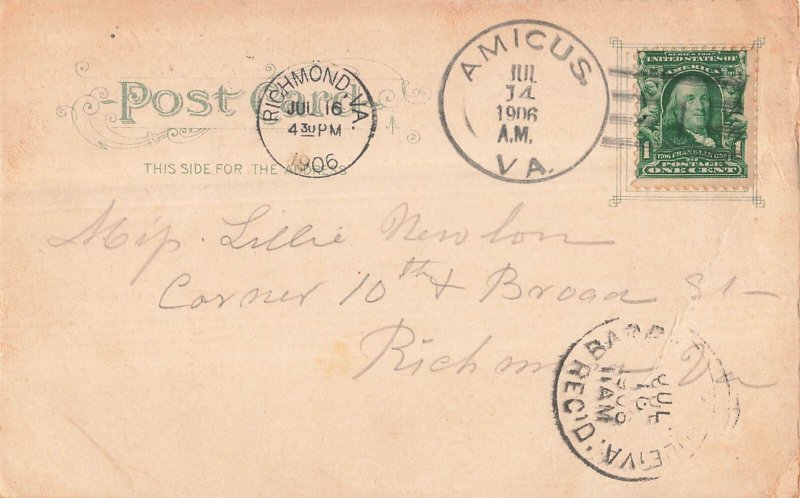 Post Card
THIS SIDE FOR THE ADDRESS
RICHMOND, VA.
JUL 16
4 30 PM
1906
AMICUS,
JUL
14
1906
A.M.
VA.
SERIES 1902
UNITED STATES OF
AMERICA
1 1
FRANKLIN
POSTAGE
ONE CENT
Miss. Lillie Newlon
Corner 10th & Broad St
Richmond Va
JUL
16
1906
11 AM
VA.
REC'D.